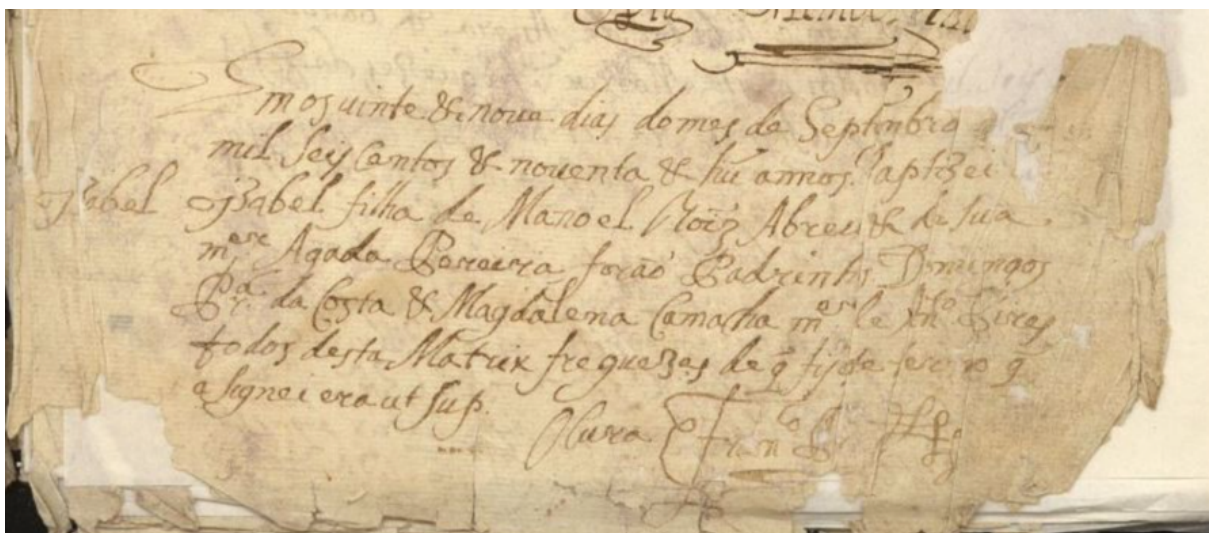 Em os uinte & noue dias do mes de Septembro
mil Seis Centos & nouenta & hũ annos baptizei
Izabel
Izabel filha de Manoel Roĩz Abreu & de sua
mer Agada Pereira forão Padrinhos Domingos
Pra da Costa & Magdalena Camacha mer de Anto Pires
todos desta Matrix freguezes de q̃ fiz este termo q̃
asignei era ut sup.
O Cura